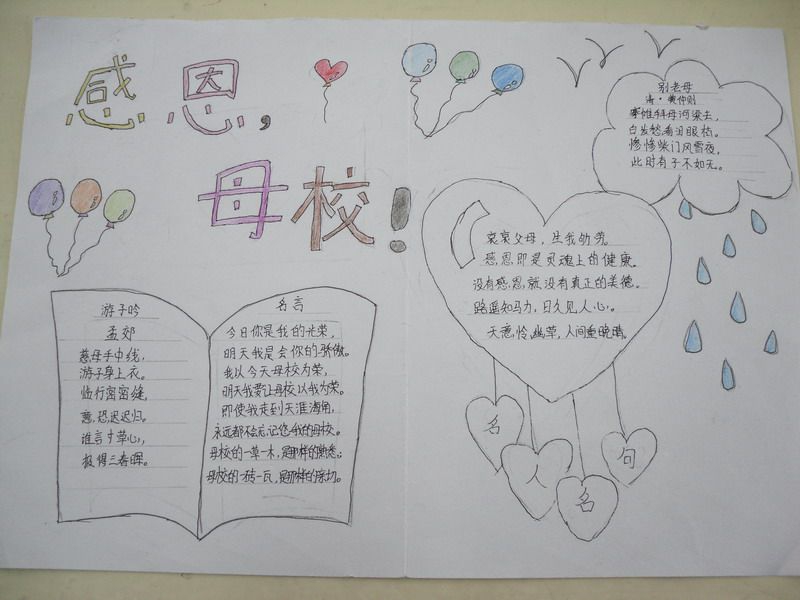 感恩，
母校！
游子吟
孟郊
慈母手中线，
游子身上衣。
临行密密缝，
意恐迟迟归。
谁言寸草心，
报得三春晖。
名言
今日你是我的光荣，
明天我是会你的骄傲。
我以今天母校为荣，
明天我要让母校以我为荣。
即使我走到天涯海角，
永远都不会忘记您我的母校。
母校的一草一木，是那样的熟悉；
母校的一砖一瓦，是那样的亲切。
哀哀父母，生我劬劳。
感恩即是灵魂上的健康。
没有感恩就没有真正的美德。
路遥知马力，日久见人心。
天意怜幽草，人间重晚晴。
名
人
名
句
别老母
清·黄仲则
搴帷拜母河梁去，
白发愁看泪眼枯。
惨惨柴门风雪夜，
此时有子不如无。